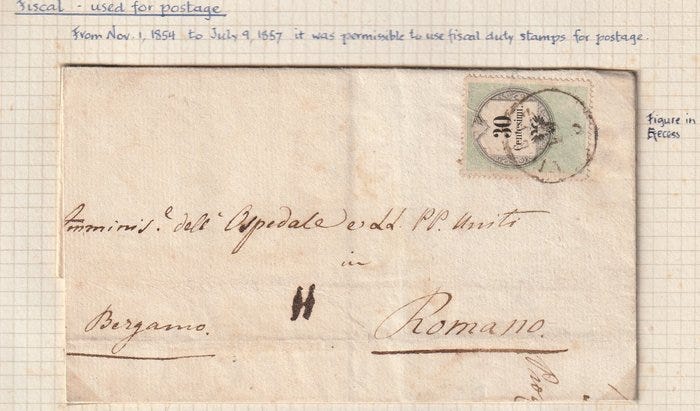 Fiscal - used for postage
From Nov. 1, 1854 to July 9, 1857 it was permissible to use fiscal duty stamps for postage.
30
Centesimi.
Figure in
Excess
Amminis.e dell' Ospedale e LL. PP. Uniti
in
Bergamo.
Romano.